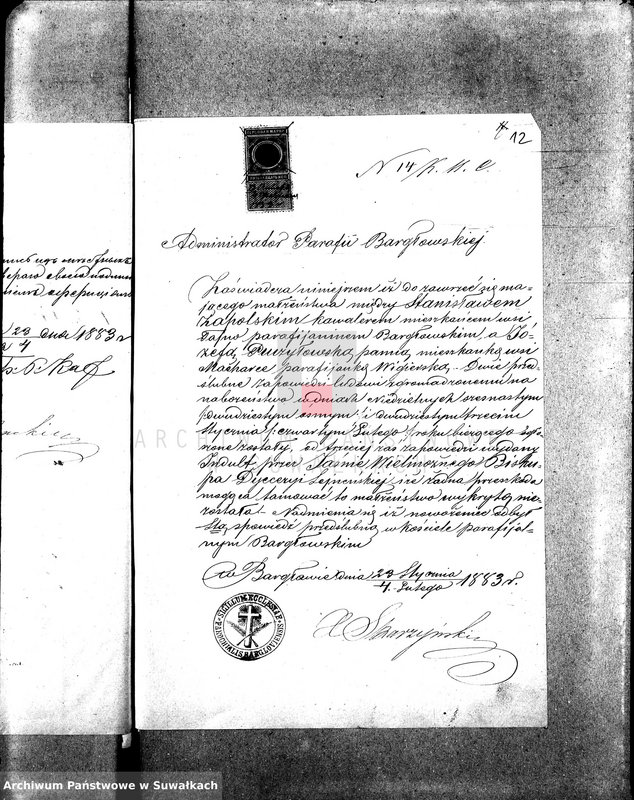 12
N 14/K. M. C.
Administrator Parafii Bargłowskiej
Zaświadcza niniejszem iż do zawrzeć się ma-
jącego małżeństwa między Stanisławem
Zapolskim kawalerem mieszkańcem wsi
Tajno parafijaninem Bargłowskim, a Jó-
zefą Puczyłowską panną mieszkanką wsi
Macharce parafijanką Wigierską. Dwie przed-
ślubne zapowiedzi ludowi zgromadzonemu na
nabożeństwo w dniach Niedzielnych szesnastym
dwudziestym ósmym i dwudziestym trzecim
Stycznia czwartym Lutego roku bieżącego ogło-
szone zostały, od trzeciej zaś zapowiedzi wydany
Indult przez Jaśnie Wielmożnego Bisku-
pa Dyecezyi Sejneńskiej i że żadna przeszkoda
mogąca tamować to małżeństwo wykrytą nie
została. Nadmienia się iż nowożeniec odbył
Stą spowiedź przedślubną w kościele parafijal-
nym Bargłowskim
w Bargłowie dnia 23 Stycznia 1883 r.
4 Lutego
X Skarżyński
SIGILLUM ECCLESIAE PAROCHIALIS BARGLOVIENSIS
1883 г
4
ARCHIWUM
Archiwum Państwowe w Suwałkach